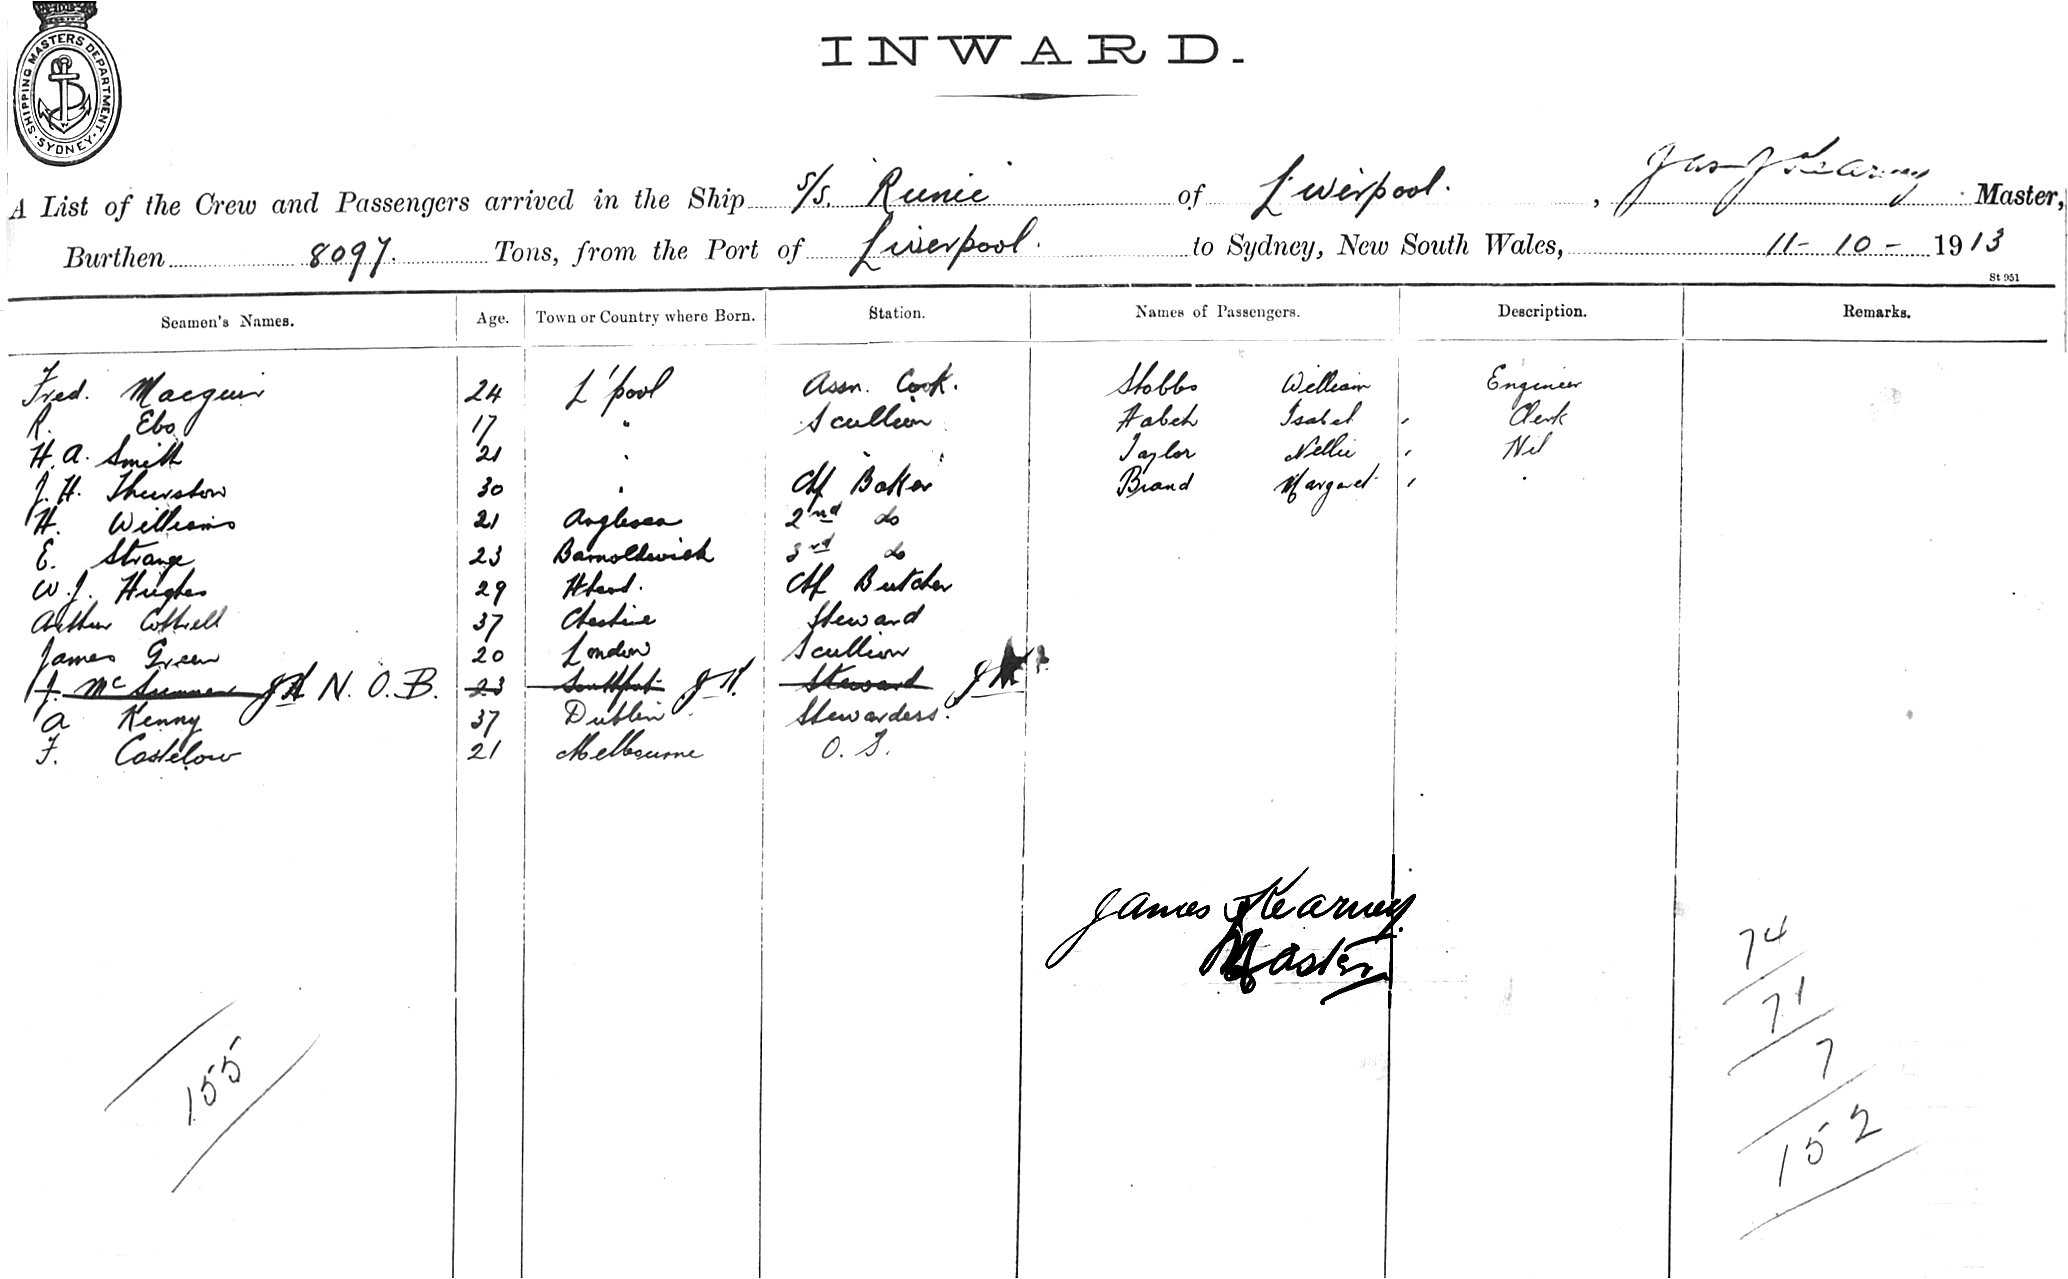 SHIPPING MASTERS DEPARTMENT. SYDNEY
INWARD.
A List of the Crew and Passengers arrived in the Ship S/S. Runic of Liverpool. , Jas J Kearney Master,
Burthen 8097. Tons, from the Port of Liverpool. to Sydney, New South Wales, 11-10-1913
St 951
Seamen's Names. Age. Town or Country where Born. Station. Names of Passengers. Description. Remarks.
Fred. Macguir 24 L'pool Assn. Cook. Stobbs William Engineer
R. Ebo 17 " Scullion Isabel " Clerk
H. A. Smith 21 " " Taylor Nellie " Nil
J. H. Thurston 30 " Chf Baker Brand Margaret " "
H. Williams 21 Anglesea 2nd do
E. Strange 23 Barnoldswick 3rd do
W. J. Hughes 29 Chf Butcher
Arthur Cottrell 37 Cheshire Steward
James Green 20 London Scullion
J. Mc JK N. O. B. 23 Southport JK Steward JK
A Kenny 37 Dublin Stewardess.
F. Costelow 21 Melbourne O. S.
James J Kearney.
Master
74
71
7
152
155